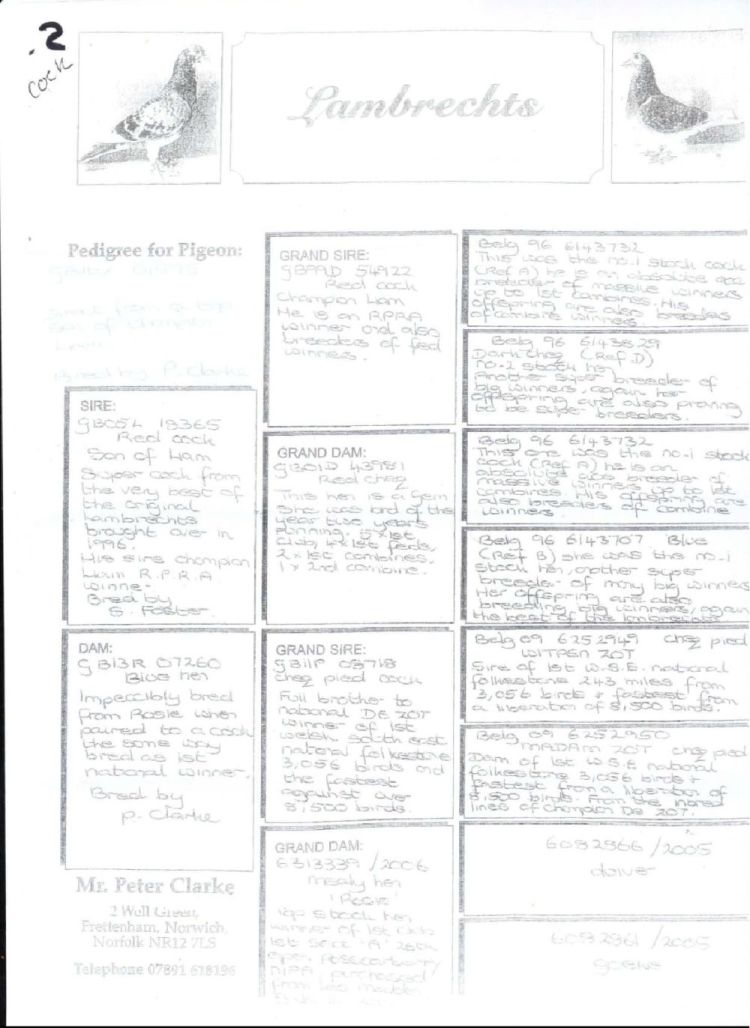 .2
Cock
Lambrechts
Pedigree for Pigeon:
Bred by P. Clarke
SIRE:
GB05L 18365
Red cock
Son of Ham
Super cock from
the very best of
the original
Lambrechts
brought over in
1996.
His sire champion
Ham R.P.R.A
winner
Bred by
S. Foster
DAM:
GB13R 07260
Blue hen
Impeccibly bred
from Rosie when
paired to a cock
the same way
bred as 1st
national winner.
Bred by
P. Clarke
Mr. Peter Clarke
2 Well Green,
Frettenham, Norwich,
Norfolk NR12 7LS
Telephone 07891 618196
GRAND SIRE:
54922
Red cock
Champion Ham
He is an RPRA
winner and also
breeders of fed
winners.
GRAND DAM:
GB01D 43981
Red cheq
This hen is a gem
she was bird of the
year two years
running. 5x1st
club, 4x1st feds,
2x1st combines,
1x2nd combine.
GRAND SIRE:
GB11P 03718
cheq pied cock
Full brother to
national De ZOT
winner of 1st
welsh south east
national folkestone
3,056 birds and
the fastest
against over
8,500 birds.
GRAND DAM:
6313339/2006
mealy hen
'Rosie'
top stock hen
winner of 1st club
1st sect 'A'
open
NIPA purchased
from
Belg 96 6143732
This was the no.1 stock cock
(Ref A) he is an absolute ace
breeder of massive winners
up to 1st combines. His
offspring are also breeders
of combine winners.
Belg 96 6143829
Dark cheq (Ref D)
no.2 stock hen
Another super breeder of
big winners, again her
offspring are also proving
to be super breeders.
Belg 96 6143732
This one was the no.1 stock
cock (Ref A) he is an
absolute ace breeder of
massive winners up to 1st
combines His offspring are
also breeders of combine
winners
Belg 96 6143707 Blue
(Ref B) she was the no.1
stock hen, another super
breeder of many big winners
Her offspring are also
breeding big winners, again
the best of the Lambrechts
Belg 09 6252949 cheq pied
WITPEN ZOT
Sire of 1st W.S.E. national
folkestone 243 miles from
3,056 birds + fastest from
a liberation of 8,500 birds.
Belg 09 6252950
MADAM ZOT cheq pied
Dam of 1st W.S.E national
folkestone 3,056 birds +
fastest from a liberation of
8,500 birds. From the inbred
lines of champion De ZOT.
6092966/2005
6092961/2005